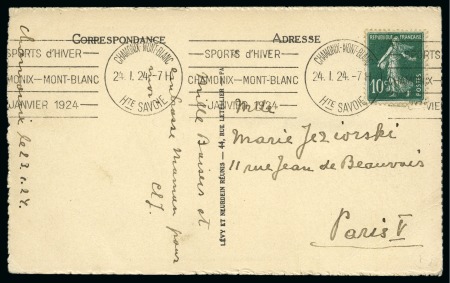 CORRESPONDANCE
ADRESSE
SPORTS d'HIVER
CHAMONIX-MONT-BLANC
JANVIER 1924
CHAMONIX-MONT-BLANC
24. 1. 24. - 7 H
Hte SAVOIE
SPORTS d'HIVER
CHAMONIX-MONT-BLANC
JANVIER 1924
CHAMONIX-MONT-BLANC
24. 1. 24. - 7 H
Hte SAVOIE
RÉPUBLIQUE FRANÇAISE
10c
POSTES
Chamonix le 23.1.24.
Mille Baisers et
embrasse Maman pour
moi
LÉVY ET NEURDEIN RÉUNIS — 44, RUE LETELLIER
Mlle
Marie Jeziorski
11 rue Jean de Beauvais
Paris V